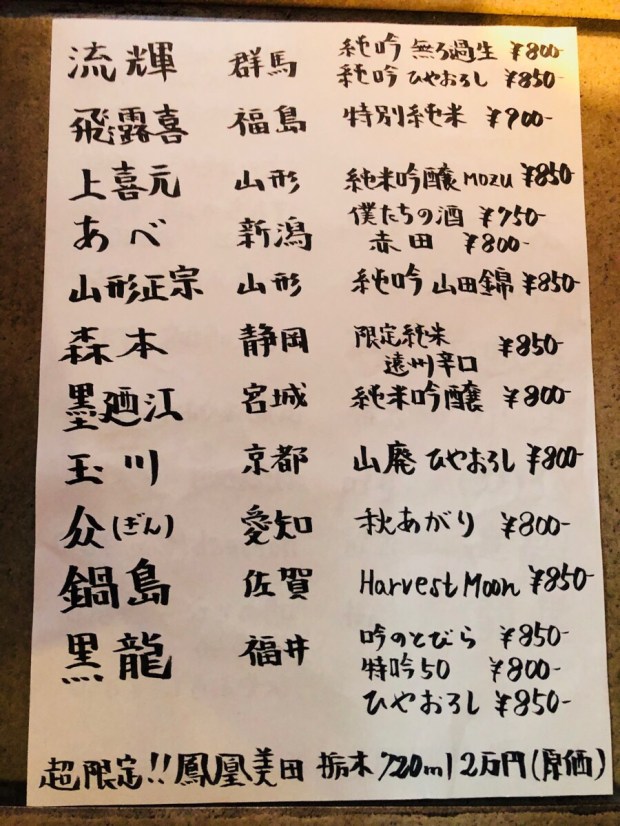 流輝 群馬 純吟 無ろ過生 ¥800-
純吟 ひやおろし ¥850-
飛露喜 福島 特別純米 ¥900-
上喜元 山形 純米吟醸 MOZU ¥850-
あべ 新潟 僕たちの酒 ¥750-
赤田 ¥800-
山形正宗 山形 純吟 山田錦 ¥850-
森本 静岡 限定純米 ¥850-
遠州辛口
墨廼江 宮城 純米吟醸 ¥800-
玉川 京都 山廃 ひやおろし ¥800-
仌(ぎん) 愛知 秋あがり ¥800-
鍋島 佐賀 Harvest Moon ¥850-
黒龍 福井 吟のとびら ¥850-
特吟50 ¥800-
ひやおろし ¥850-
超限定!!鳳凰美田 栃木 720ml 2万円(原価)